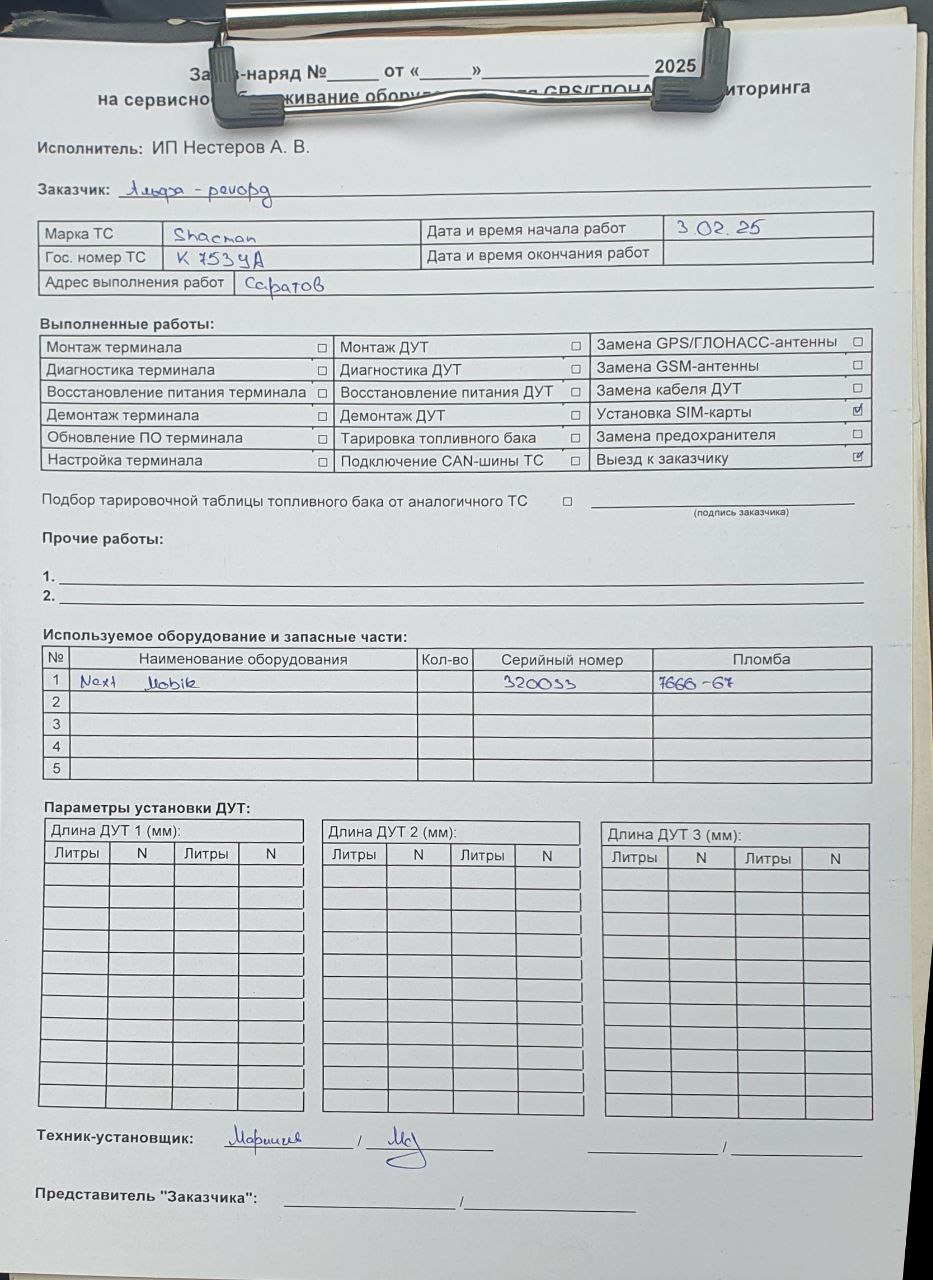 За -наряд №_____ от «_____»________________ 2025
на сервисно живание обору GPS/ГЛОНА иторинга
Исполнитель: ИП Нестеров А. В.
Заказчик: Альфа - рекорд
Марка ТС Shacman Дата и время начала работ 3 02. 25
Гос. номер ТС К 753 УА Дата и время окончания работ
Адрес выполнения работ Саратов
Выполненные работы:
Монтаж терминала ☐ Монтаж ДУТ ☐ Замена GPS/ГЛОНАСС-антенны ☐
Диагностика терминала ☐ Диагностика ДУТ ☐ Замена GSM-антенны ☐
Восстановление питания терминала ☐ Восстановление питания ДУТ ☐ Замена кабеля ДУТ ☐
Демонтаж терминала ☐ Демонтаж ДУТ ☐ Установка SIM-карты ☑
Обновление ПО терминала ☐ Тарировка топливного бака ☐ Замена предохранителя ☐
Настройка терминала ☐ Подключение CAN-шины ТС ☐ Выезд к заказчику ☑
Подбор тарировочной таблицы топливного бака от аналогичного ТС ☐
(подпись заказчика)
Прочие работы:
1.
2.
Используемое оборудование и запасные части:
№ Наименование оборудования Кол-во Серийный номер Пломба
1 Next Mobile 320033 7666-67
2
3
4
5
Параметры установки ДУТ:
Длина ДУТ 1 (мм): Длина ДУТ 2 (мм): Длина ДУТ 3 (мм):
Литры N Литры N Литры N Литры N Литры N Литры N
Техник-установщик: / /
Представитель "Заказчика": /